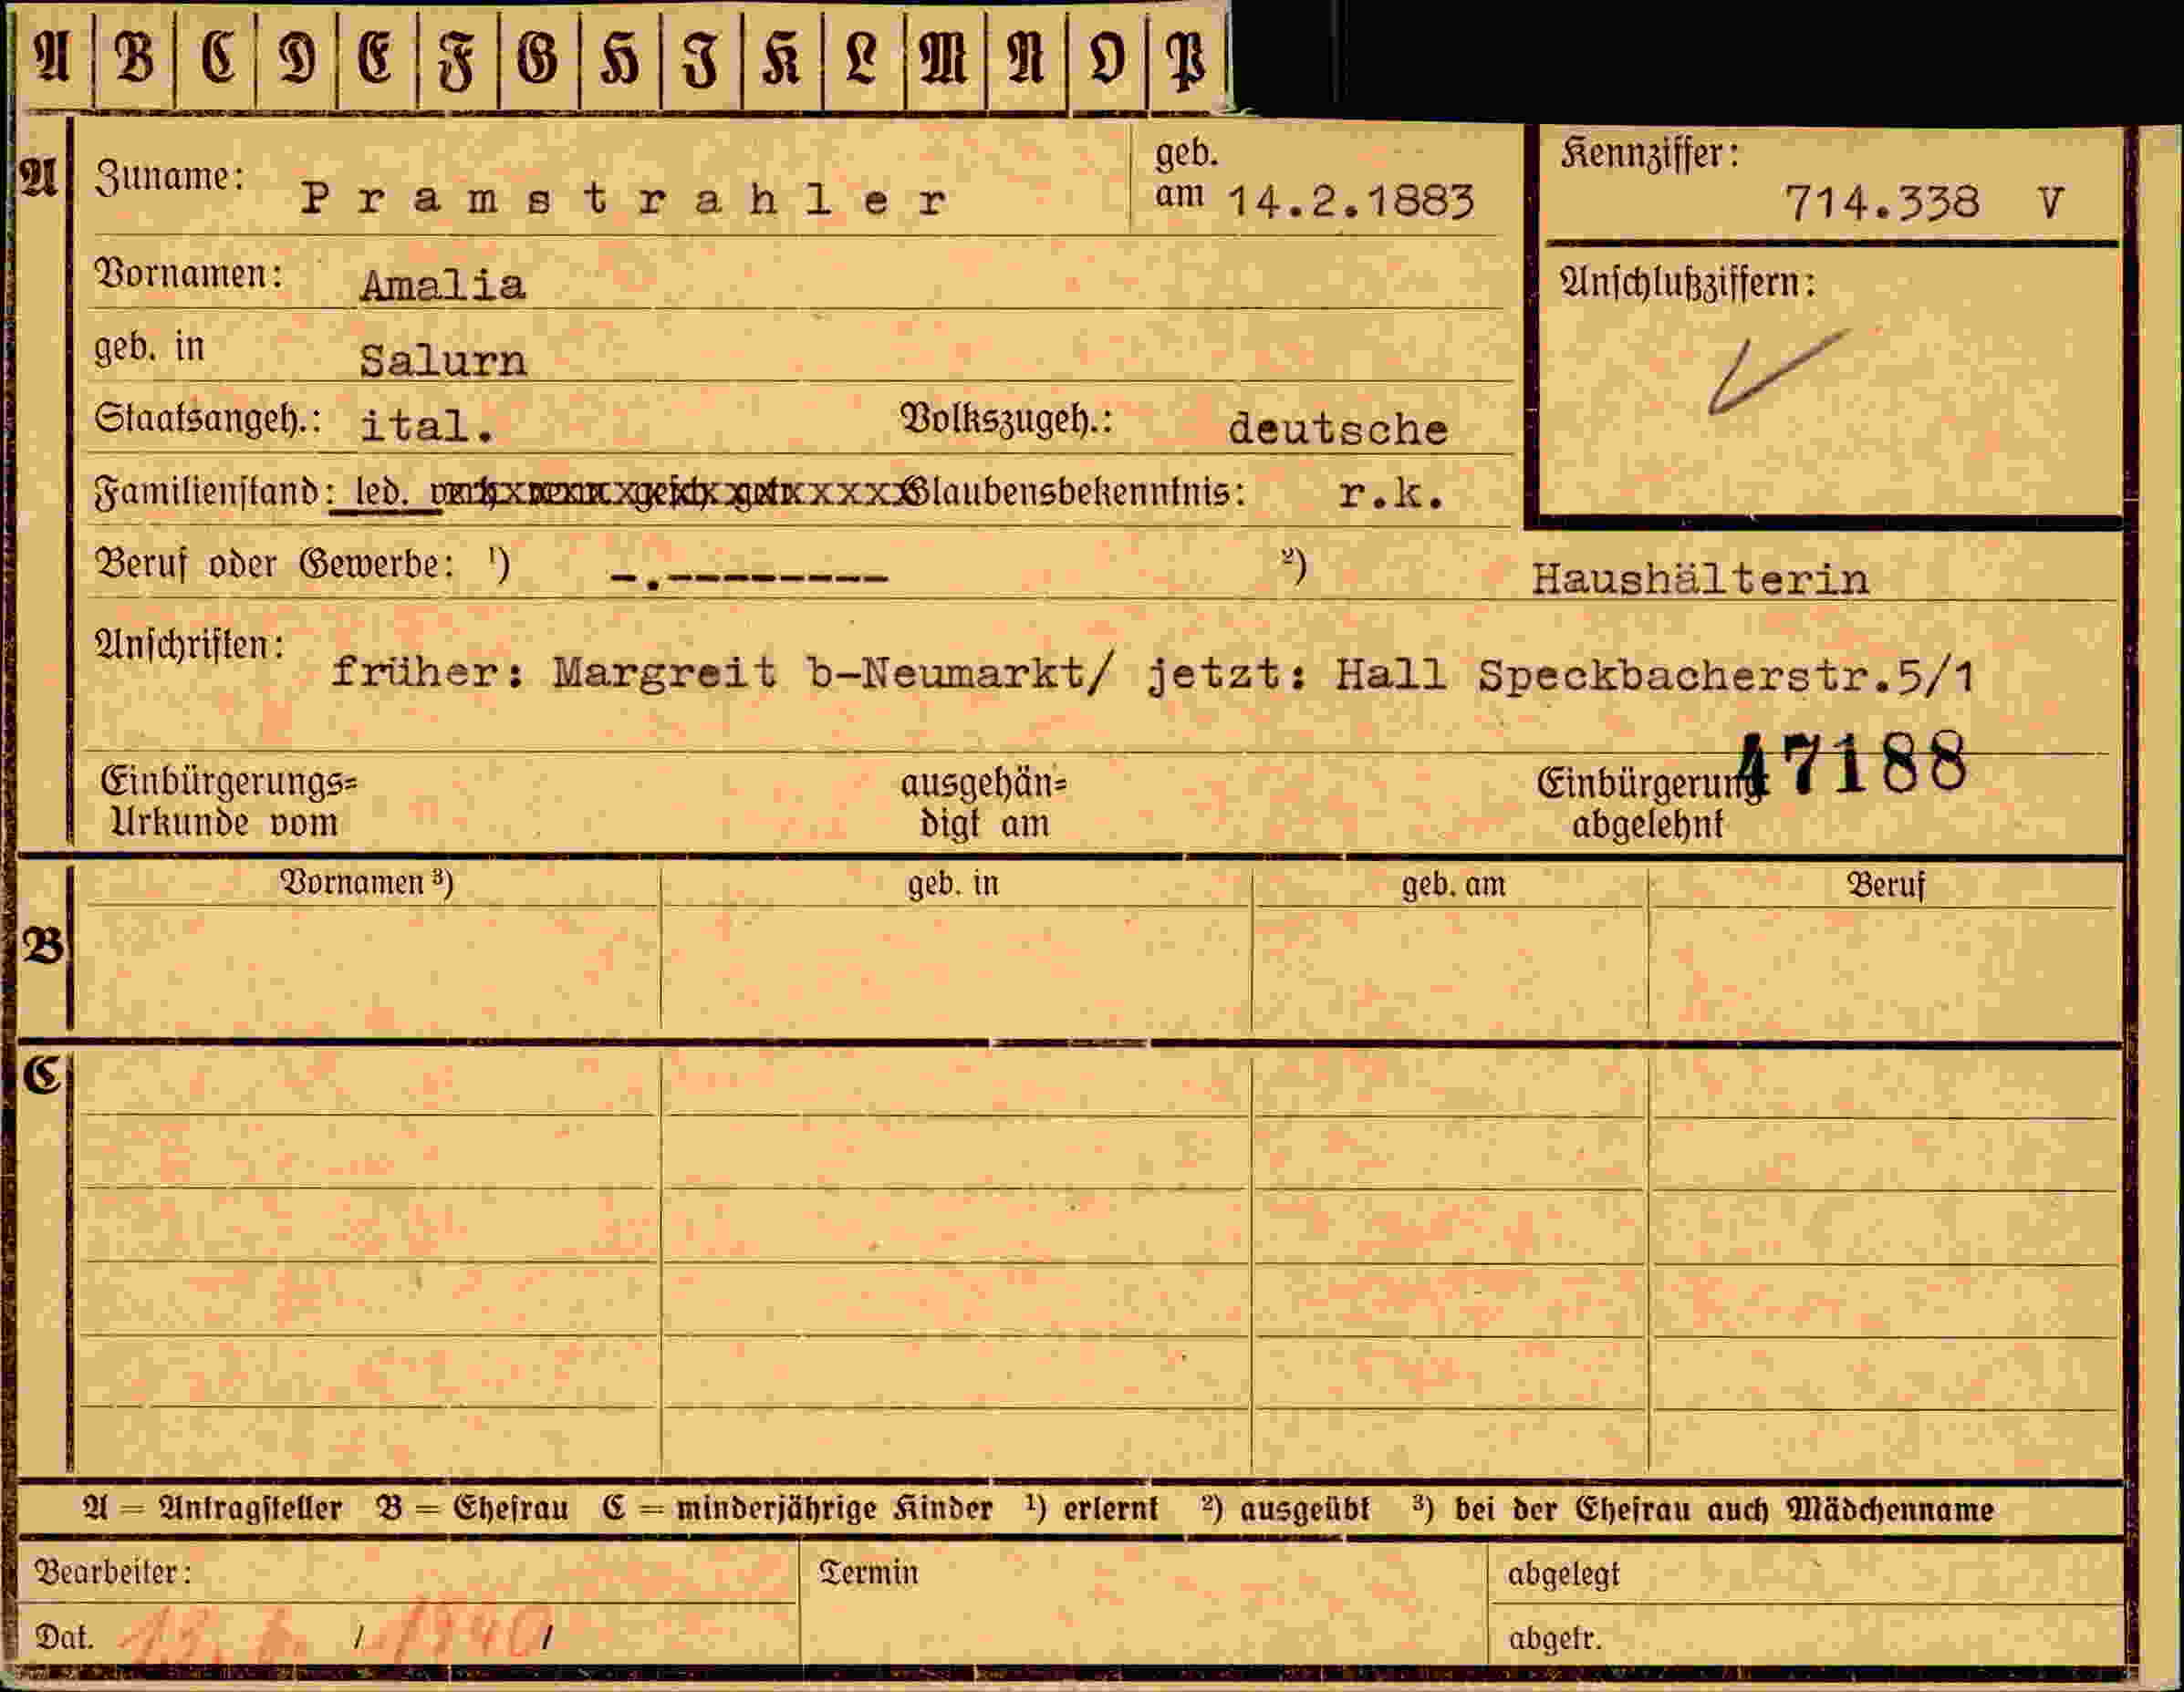 A B C D E F G H I K L M N O P
A Zuname: Pramstrahler geb. am 14.2.1883 Kennziffer: 714.338 V
Vornamen: Amalia Anschlußziffern:
geb. in Salurn
Staatsangeh.: ital. Volkszugeh.: deutsche
Familienstand: led. verh. verw. gesch. getr. Glaubensbekenntnis: r.k.
Beruf oder Gewerbe: ¹) -.-------- ²) Haushälterin
Anschriften: früher: Margreit b-Neumarkt/ jetzt: Hall Speckbacherstr.5/1
47188
Einbürgerungs= ausgehän= Einbürgerung
Urkunde vom digt am abgelehnt
Vornamen ³) geb. in geb. am Beruf
B
C
A = Antragsteller B = Ehefrau C = minderjährige Kinder ¹) erlernt ²) ausgeübt ³) bei der Ehefrau auch Mädchenname
Bearbeiter: Termin abgelegt
Dat. 1940 abgetr.